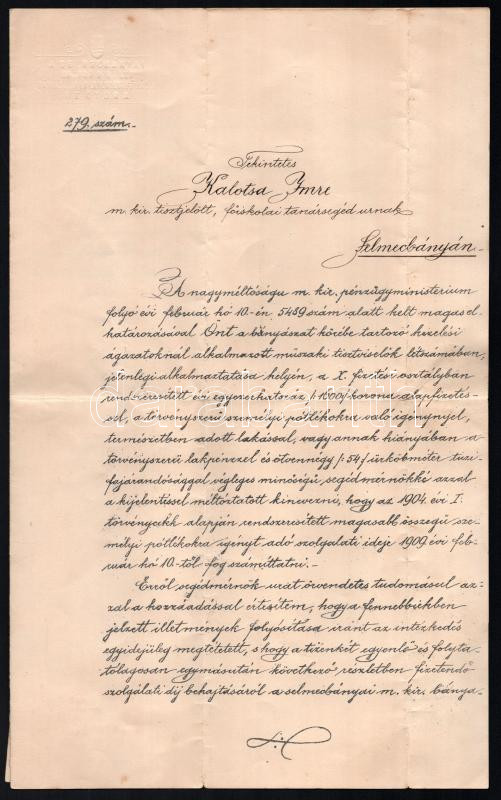 279. szám.
Tekintetes
Kalotsa Imre
m. kir. tisztjelölt, főiskolai tanársegéd urnak
Selmecbányán.
A nagyméltóságu m. kir. pénzügyministerium
folyó évi február hó 10-én 5489 szám alatt kelt magas el-
határozásával Önt a bányászat körébe tartozó kezelési
ágazatoknál alkalmazott műszaki tisztviselők létszámában,
jelenlegi alkalmaztatása helyén, a X. fizetési osztályban
rendszeresitett évi egyezerhatszáz /:1600:/ korona alapfizetés-
sel, a törvényszerű személyi pótlékokra való igénynyel,
természetben adott lakással, vagy annak hiányában a
törvényszerű lakpénzzel és ötvennégy /:54:/ ürköbméter tüzi-
fajárandósággal végleges minőségű segédmérnökké azzal
a kijelentéssel méltóztatott kinevezni, hogy az 1904. évi I.
törvénycikk alapján rendszeresitett magasabb összegű sze-
mélyi pótlékokra igényt adó szolgálati ideje 1909 évi feb-
ruár hó 10.-től fog számittatni.-
Erről segédmérnök urat örvendetes tudomásul az-
zal a hozzáadással értesitem, hogy a fennebbiekben
jelzett illetmények folyósitása iránt az intézkedés
egyidejüleg megtétetett, s hogy a tizenkét egyenlő és folyta-
tólagosan egymásután következő részletben fizetendő
szolgálati dij behajtásáról a selmecbányai m. kir. bánya-